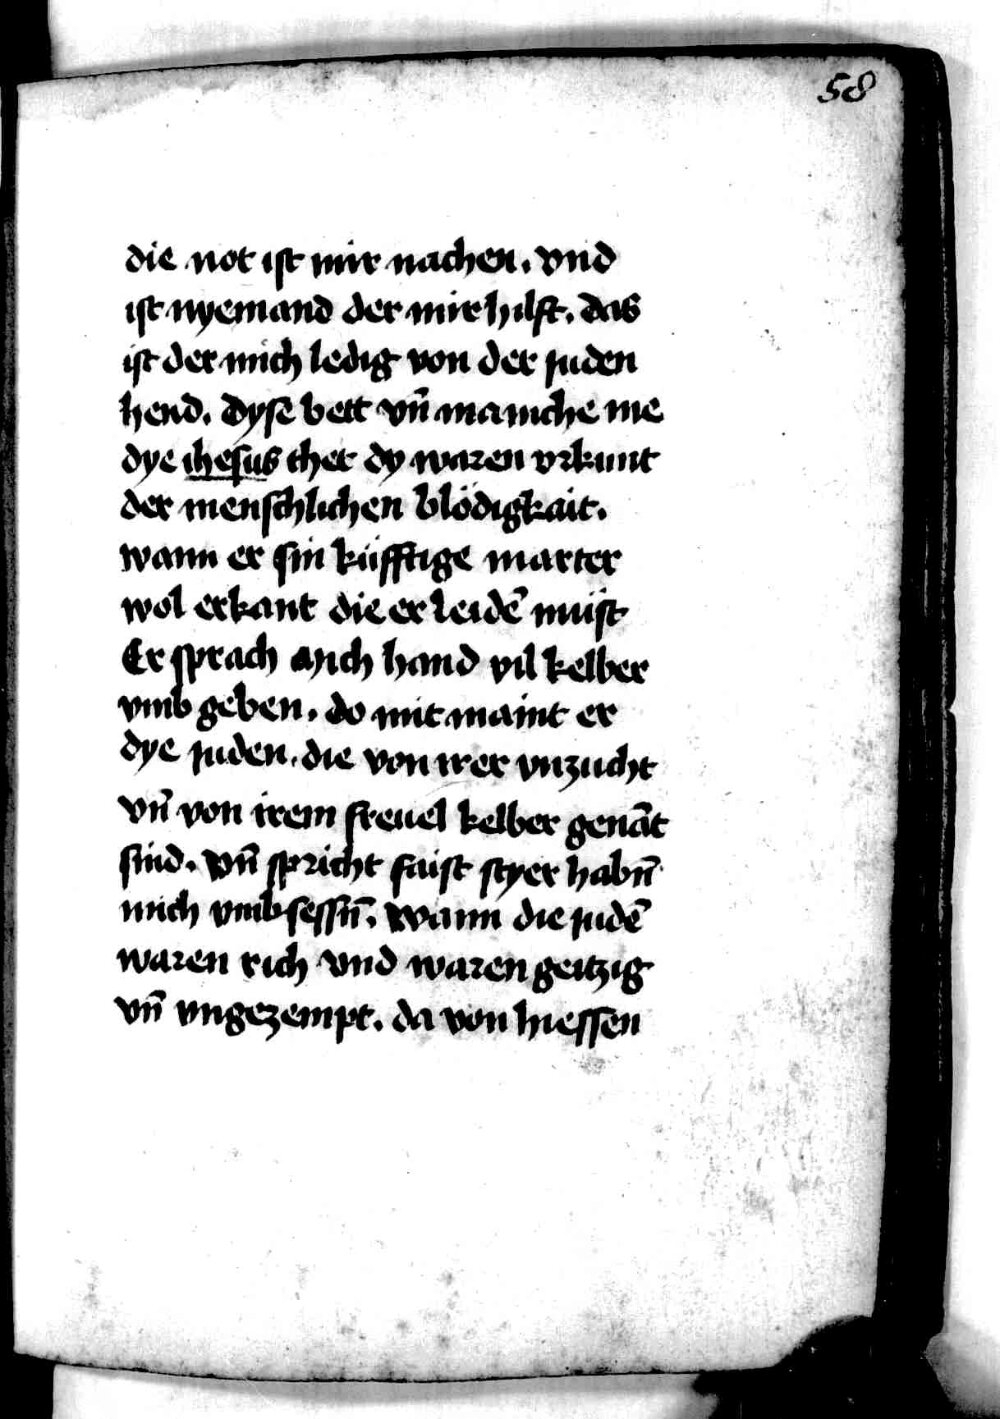 58
die not ist mir nachen. vnd
ist nyemand der mir hilft. das
ist der mich ledig von der juden
hend. Dyse bett vn̄ maniche me
dye ihesus thet dy waren vrkunt
der menschlichen blödigkait.
wann er sin küfftige marter
wol erkant die er leidē müist
Er sprach Mich hand vil kelber
vmb geben. do mit maint er
dye juden. die von irer vnzucht
vn̄ von irem freuel kelber genāt
sind. Vn̄ spricht faist styer habn̄
mich vmbsessn̄. Wann die judē
waren rich vnd waren geitzig
vn̄ vngezempt. da von hiessen